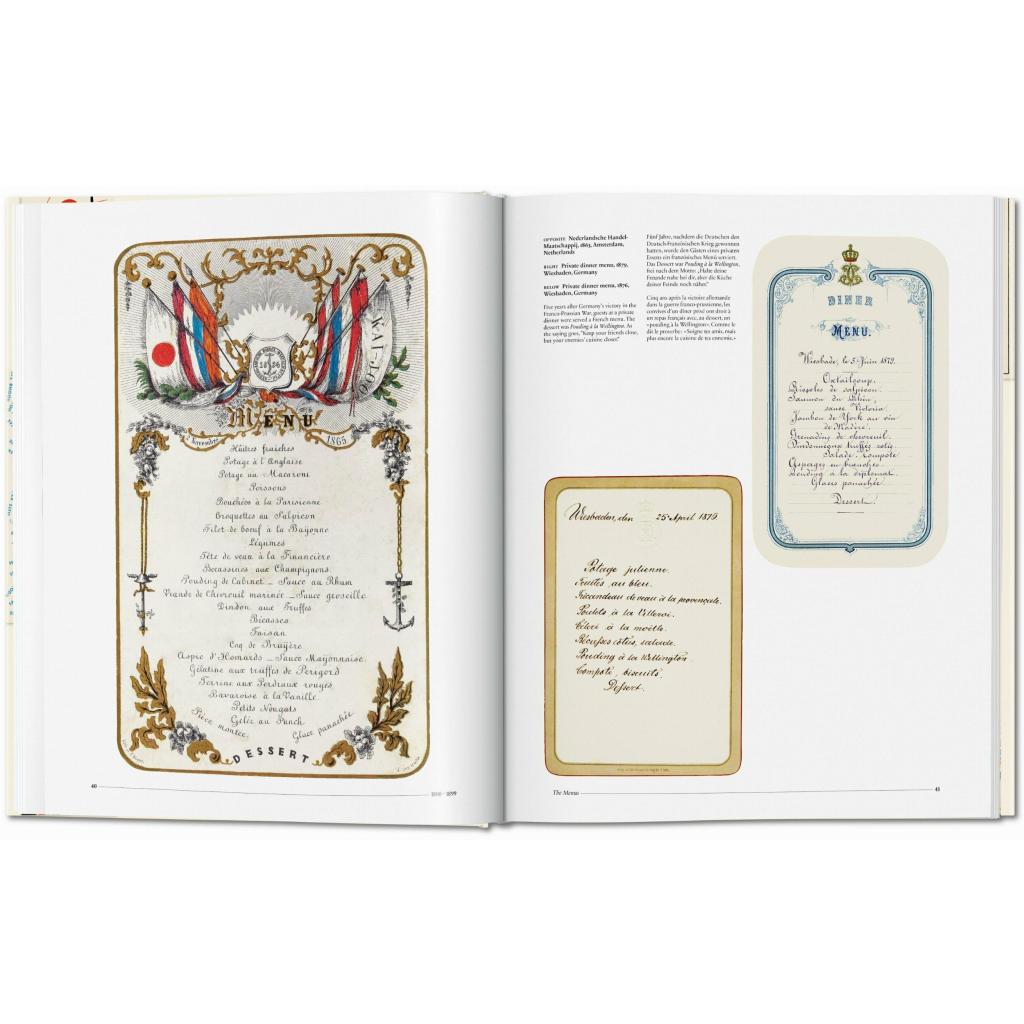 KAI-JOO
1834
MENU
2 Novembre 1865
Huîtres fraîches
Potage à l'Anglaise
Potage au Macaroni
Poissons
Bouchées à la Parisienne
Croquettes au Salpicon
Filet de boeuf à la Bayonne
Légumes
Tête de veau à la Financière
Becassines aux Champignons.
Pouding de Cabinet _ Sauce au Rhum
Viande de Chevreuil marinée _ Sauce groseille
Dindon aux Truffes
Bécasses
Faisan
Coq de Bruyère
Aspic d'Homards _ Sauce Mayonnaise.
Gélatine aux truffes de Perigord
Terrine aux Perdraux rouges
Bavaroise à la Vanille
Petits Nougats
Gelée au Punch
Pièce montée. Glace panachée
DESSERT
40
1899
OPPOSITE Nederlandsche Handel-
Maatschappij, 1865, Amsterdam,
Netherlands
RIGHT Private dinner menu, 1879,
Wiesbaden, Germany
BELOW Private dinner menu, 1876,
Wiesbaden, Germany
Five years after Germany's victory in the
Franco-Prussian War, guests at a private
dinner were served a French menu. The
dessert was Pouding à la Wellington. As
the saying goes, "Keep your friends close,
but your enemies' cuisine closer."
Fünf Jahre, nachdem die Deutschen den
Deutsch-Französischen Krieg gewonnen
hatten, wurde den Gästen eines privaten
Essens ein französisches Menü serviert.
Das Dessert war Pouding à la Wellington,
frei nach dem Motto: „Halte deine
Freunde nahe bei dir, aber die Küche
deiner Feinde noch näher."
Cinq ans après la victoire allemande
dans la guerre franco-prussienne, les
convives d'un dîner privé ont droit à
un repas français avec, au dessert, un
«pouding à la Wellington». Comme le
dit le proverbe: «Soigne tes amis, mais
plus encore la cuisine de tes ennemis.»
DINER
MENU.
Wiesbade, le 5 Juin 1879.
Oxtailsoup.
Rissoles de salpicon.
Saumon du Rhin,
sauce Victoria.
Jambon de York au vin
de Madère.
Grenadins de chevreuil.
Dindonneaux truffés rotis.
Salade. Compote
Asperges en branches.
Pouding à la diplomat.
Glaces panachée
Dessert.
Wiesbaden, den 25 April 1879.
Potage julienne.
Truites au bleu.
Fricandeau de veau à la provençale.
Poulets à la Villeroi.
Céleri à la moëlle.
salade.
Pouding à la Wellington.
Compote, biscuits.
Dessert.
The Menus
41